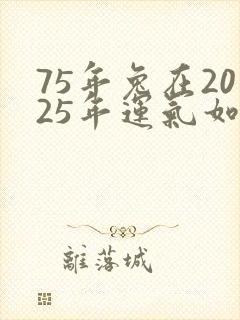 75年兔在20
25年運氣如
離落城